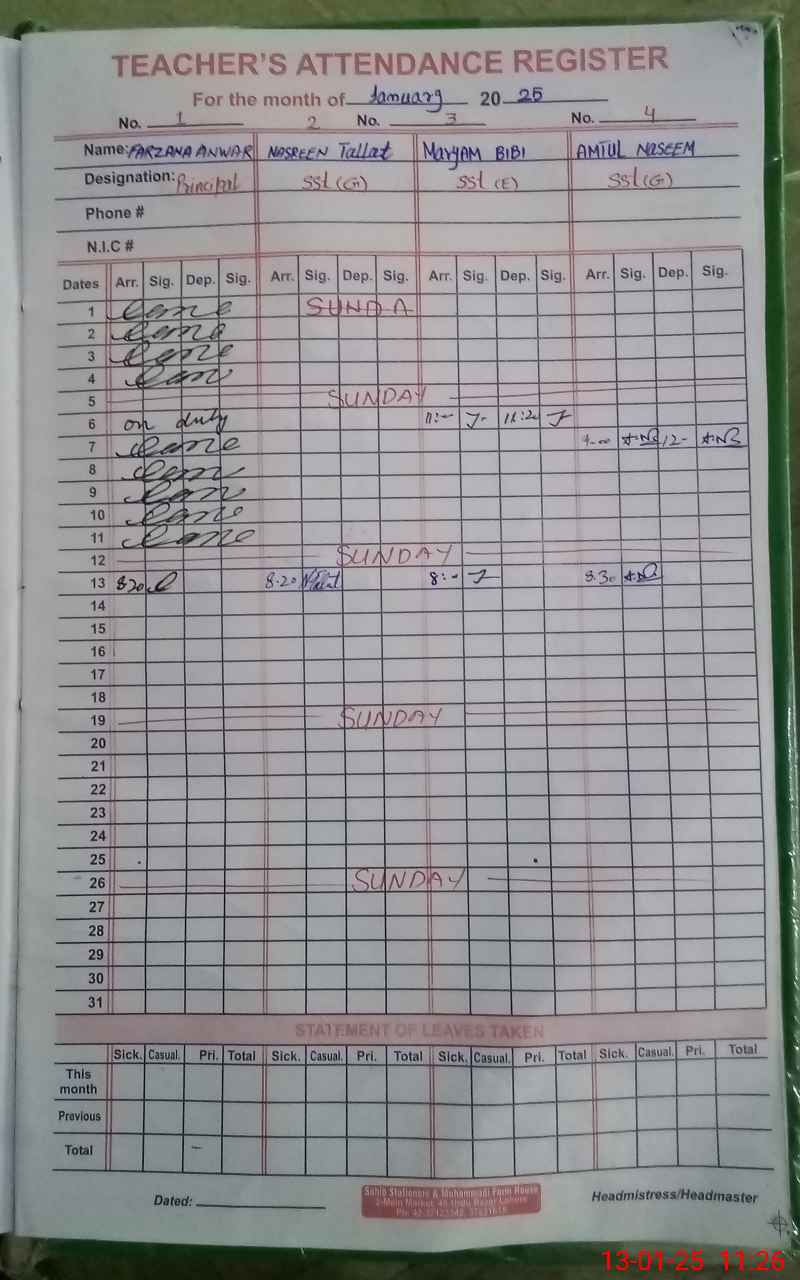 TEACHER'S ATTENDANCE REGISTER
For the month of January 2025
No. 1 2 No. 3 No. 4
Name: FARZANA ANWAR NASREEN Tallat MaryAM BIBI AMTUL NASEEM
Designation: Principal SSt (G) SSt (E) SSt (G)
Phone #
N.I.C #
Dates Arr. Sig. Dep. Sig. Arr. Sig. Dep. Sig. Arr. Sig. Dep. Sig. Arr. Sig. Dep. Sig.
1 SUNDA
2
3
4
5 SUNDAY
6 on duty 11:- 11:20
7 9-00 12-
8
9
10
11
12 SUNDAY
13 820 8.20 8:- 8.30
14
15
16
17
18
19 SUNDAY
20
21
22
23
24
25
26 SUNDAY
27
28
29
30
31
STATEMENT OF LEAVES TAKEN
Sick. Casual. Pri. Total Sick. Casual. Pri. Total Sick. Casual. Pri. Total Sick. Casual. Pri. Total
This month
Previous
Total
Dated: Headmistress/Headmaster
Sahib Stationers & Muhammadi Form House
2-Main Market, Urdu Bazar Lahore
13-01-25 11:26